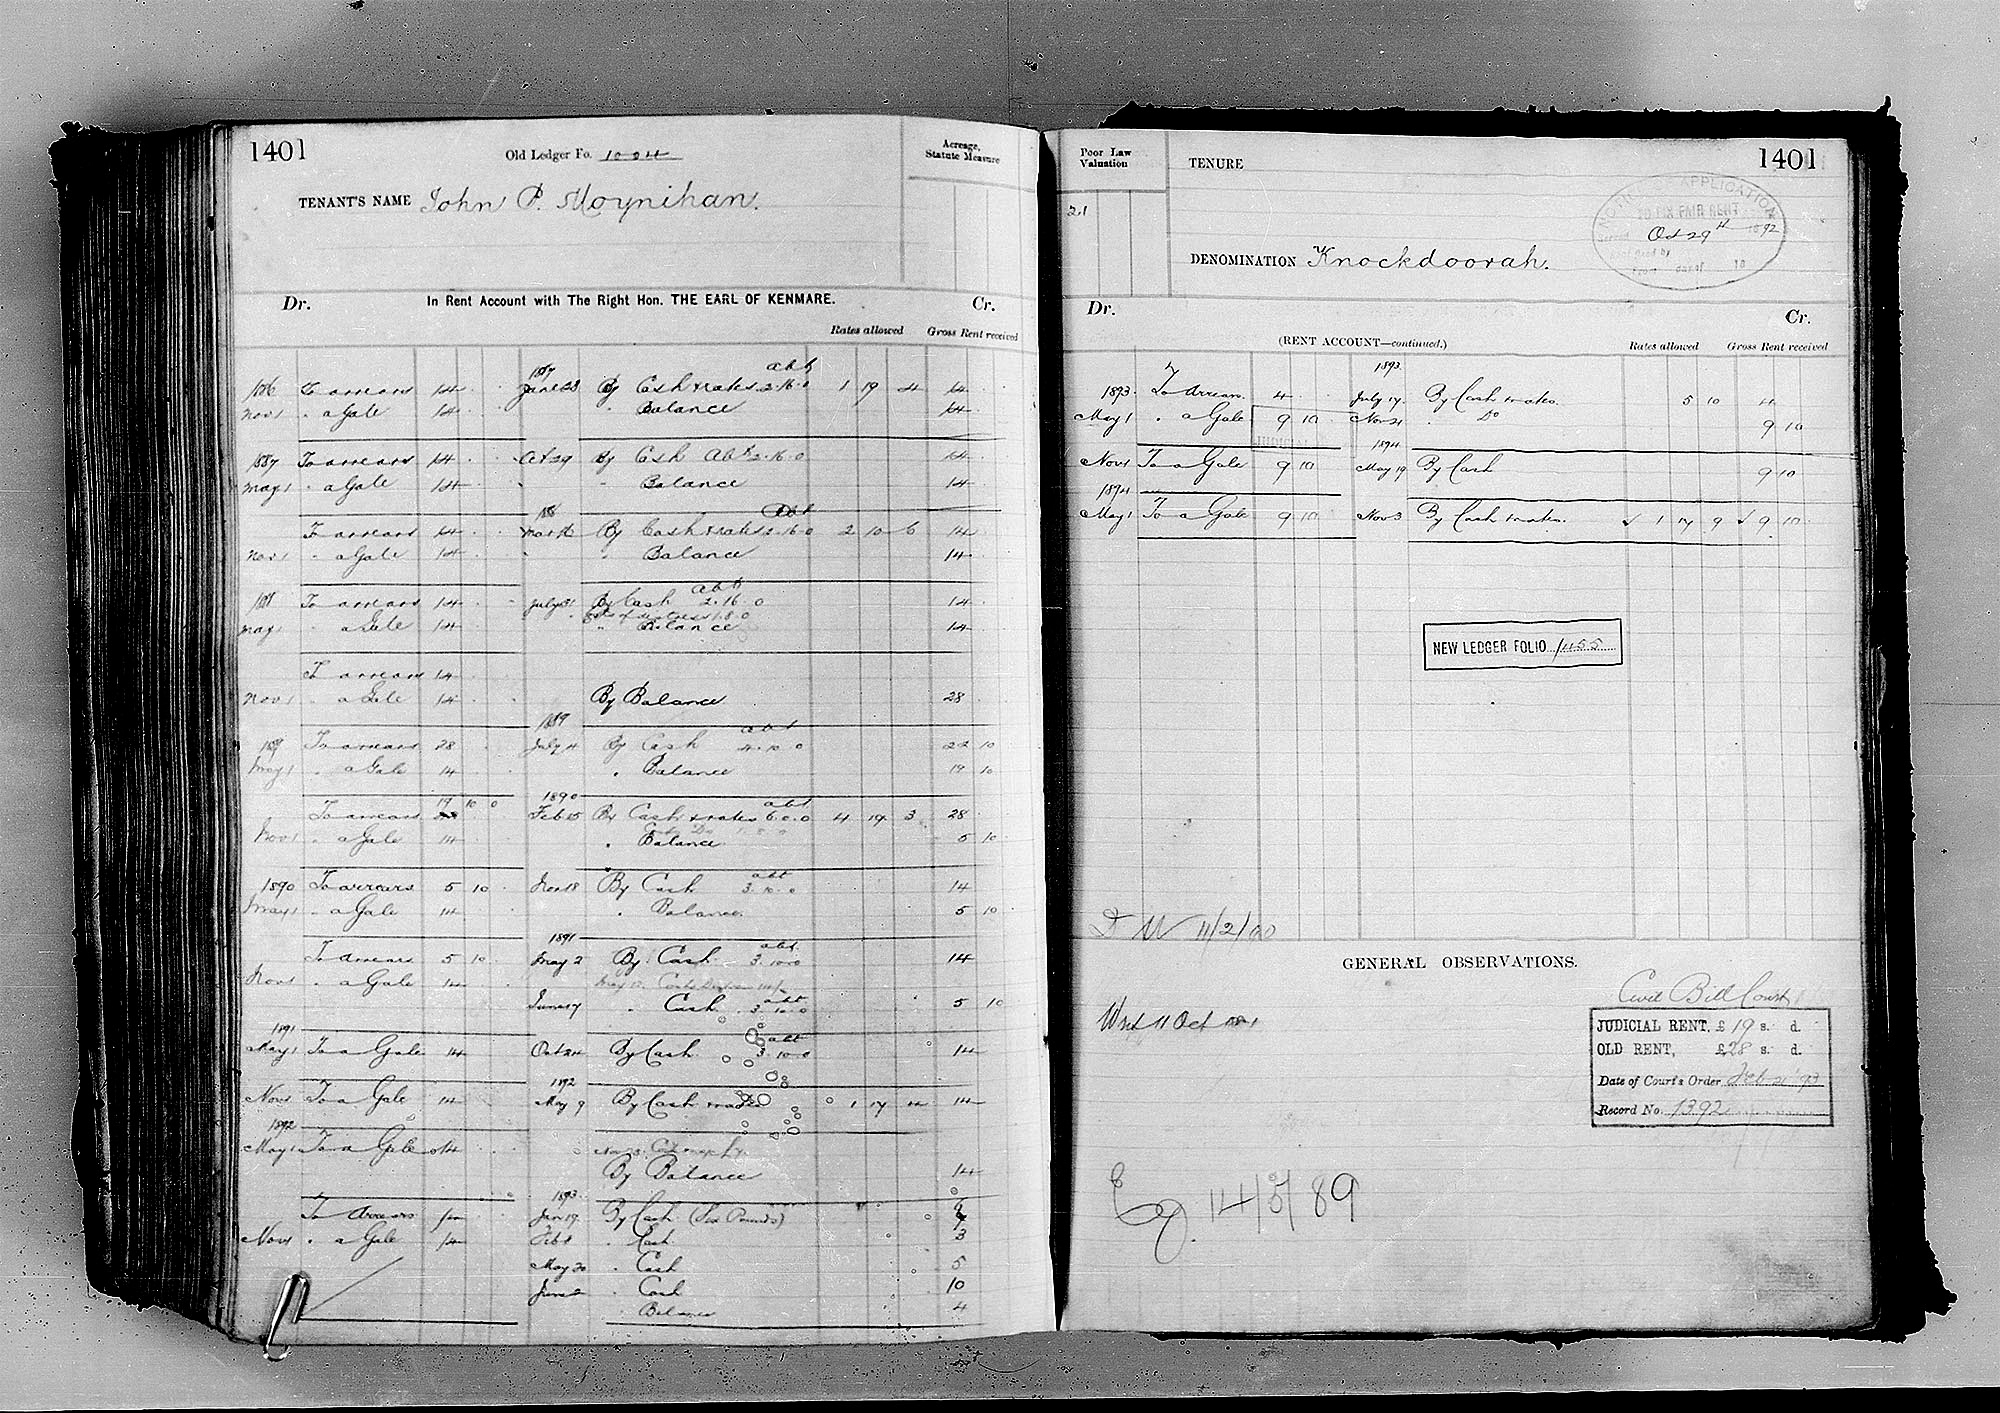 1401
Old Ledger Fo. 1004
Acreage,
Statute Measure
TENANT'S NAME John P. Moynihan.
Dr. In Rent Account with The Right Hon. THE EARL OF KENMARE. Cr.
Rates allowed Gross Rent received
1887 abt
1886 To arrears 14 June 23 By Cash & rates 2.16.0 1 19 4 14
Nov 1 " a Gale 14 " Balance 14
1887 To arrears 14 Oct 29 By Cash Abt 2.16.0 14
May 1 " a Gale 14 " " Balance 14
188 Abt
To arrears 14 Mar 16 By Cash & rates 2.16.0 2 10 6 14
Nov 1 " a Gale 14 " Balance 14
abt
1888 To arrears 14 July 31 By Cash 2.16.0 14
Costs of distress 1.8.0
May 1 " a Gale 14 " Balance 14
To arrears 14
Nov 1 " a Gale 14 By Balance 28
1889 abt
1889 To arrears 28 July 4 By Cash 4.10.0 22 10
May 1 " a Gale 14 " Balance 19 10
19 10 0 1890 abt
To arrears 28 Feb 15 By Cash & rates 6.0.0 4 19 3 28
1.8.0
Nov 1 " a Gale 14 " Balance 5 10
abt
1890 To arrears 5 10 Nov 18 By Cash 3.10.0 14
May 1 " a Gale 14 " Balance 5 10
1891 abt
To arrears 5 10 May 2 By Cash 3.10.0 14
Nov 1 " a Gale 14 May 12 Costs
June 17 " Cash abt 3.10.0 5 10
1891 abt
May 1 To a Gale 14 Oct 24 By Cash 3.10.0 14
1892
Nov 1 To a Gale 14 May 9 By Cash & rates 1 17 4 14
1892
May 1 To a Gale 14
By Balance 14
1893
To Arrears 14 Jan 19 By Cash (Six Pounds) 6
Nov 1 " a Gale 14 Feb 8 " Cash 3
May 20 " Cash 5
June 2 " Cash 10
" Balance 4
Poor Law
Valuation
21
TENURE
1401
NOTICE OF APPLICATION
TO FIX FAIR RENT
Served Oct 29th 1892
From day of 18
DENOMINATION Knockdoorah.
Dr. Cr.
(RENT ACCOUNT—continued.)
Rates allowed Gross Rent received
1893
1893 To Arrears 4 July 17 By Cash & rates. 5 10 4
May 1 " a Gale 9 10 Nov 21 " Do 9 10
JUDICIAL
1894
Nov 1 To a Gale 9 10 May 19 By Cash 9 10
1894
May 1 To a Gale 9 10 Nov 3 By Cash & rates. 1 17 9 9 10
NEW LEDGER FOLIO 1455
11/2/90
GENERAL OBSERVATIONS.
Civil Bill Court
Writ 11 Oct
JUDICIAL RENT, £19 s. d.
OLD RENT, £28 s. d.
Date of Court's Order Feb 21 '93
Record No. 1392
14/5/89